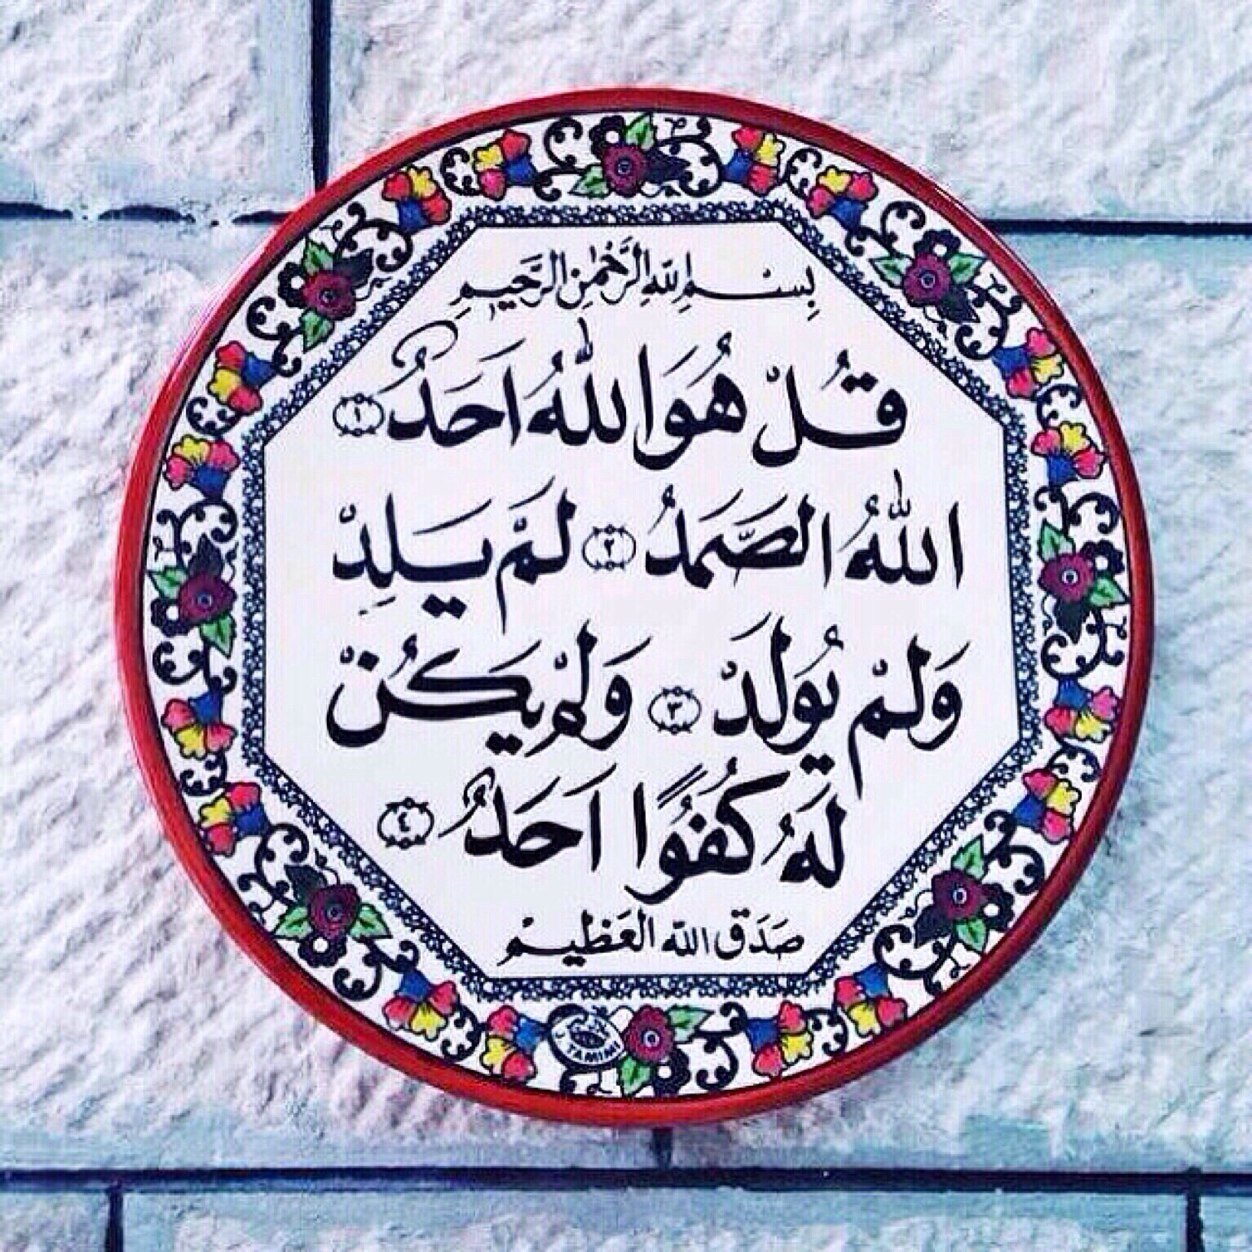 بِسْمِ اللّٰهِ الرَّحْمٰنِ الرَّحِيمِ
قُلْ هُوَ اللّٰهُ اَحَدٌ ١
اَللّٰهُ الصَّمَدُ ٢ لَمْ يَلِدْ
وَلَمْ يُولَدْ ٣ وَلَمْ يَكُنْ
لَهُ كُفُوًا اَحَدٌ ٤
صَدَقَ اللّٰه العَظِيمْ
TAMIMI